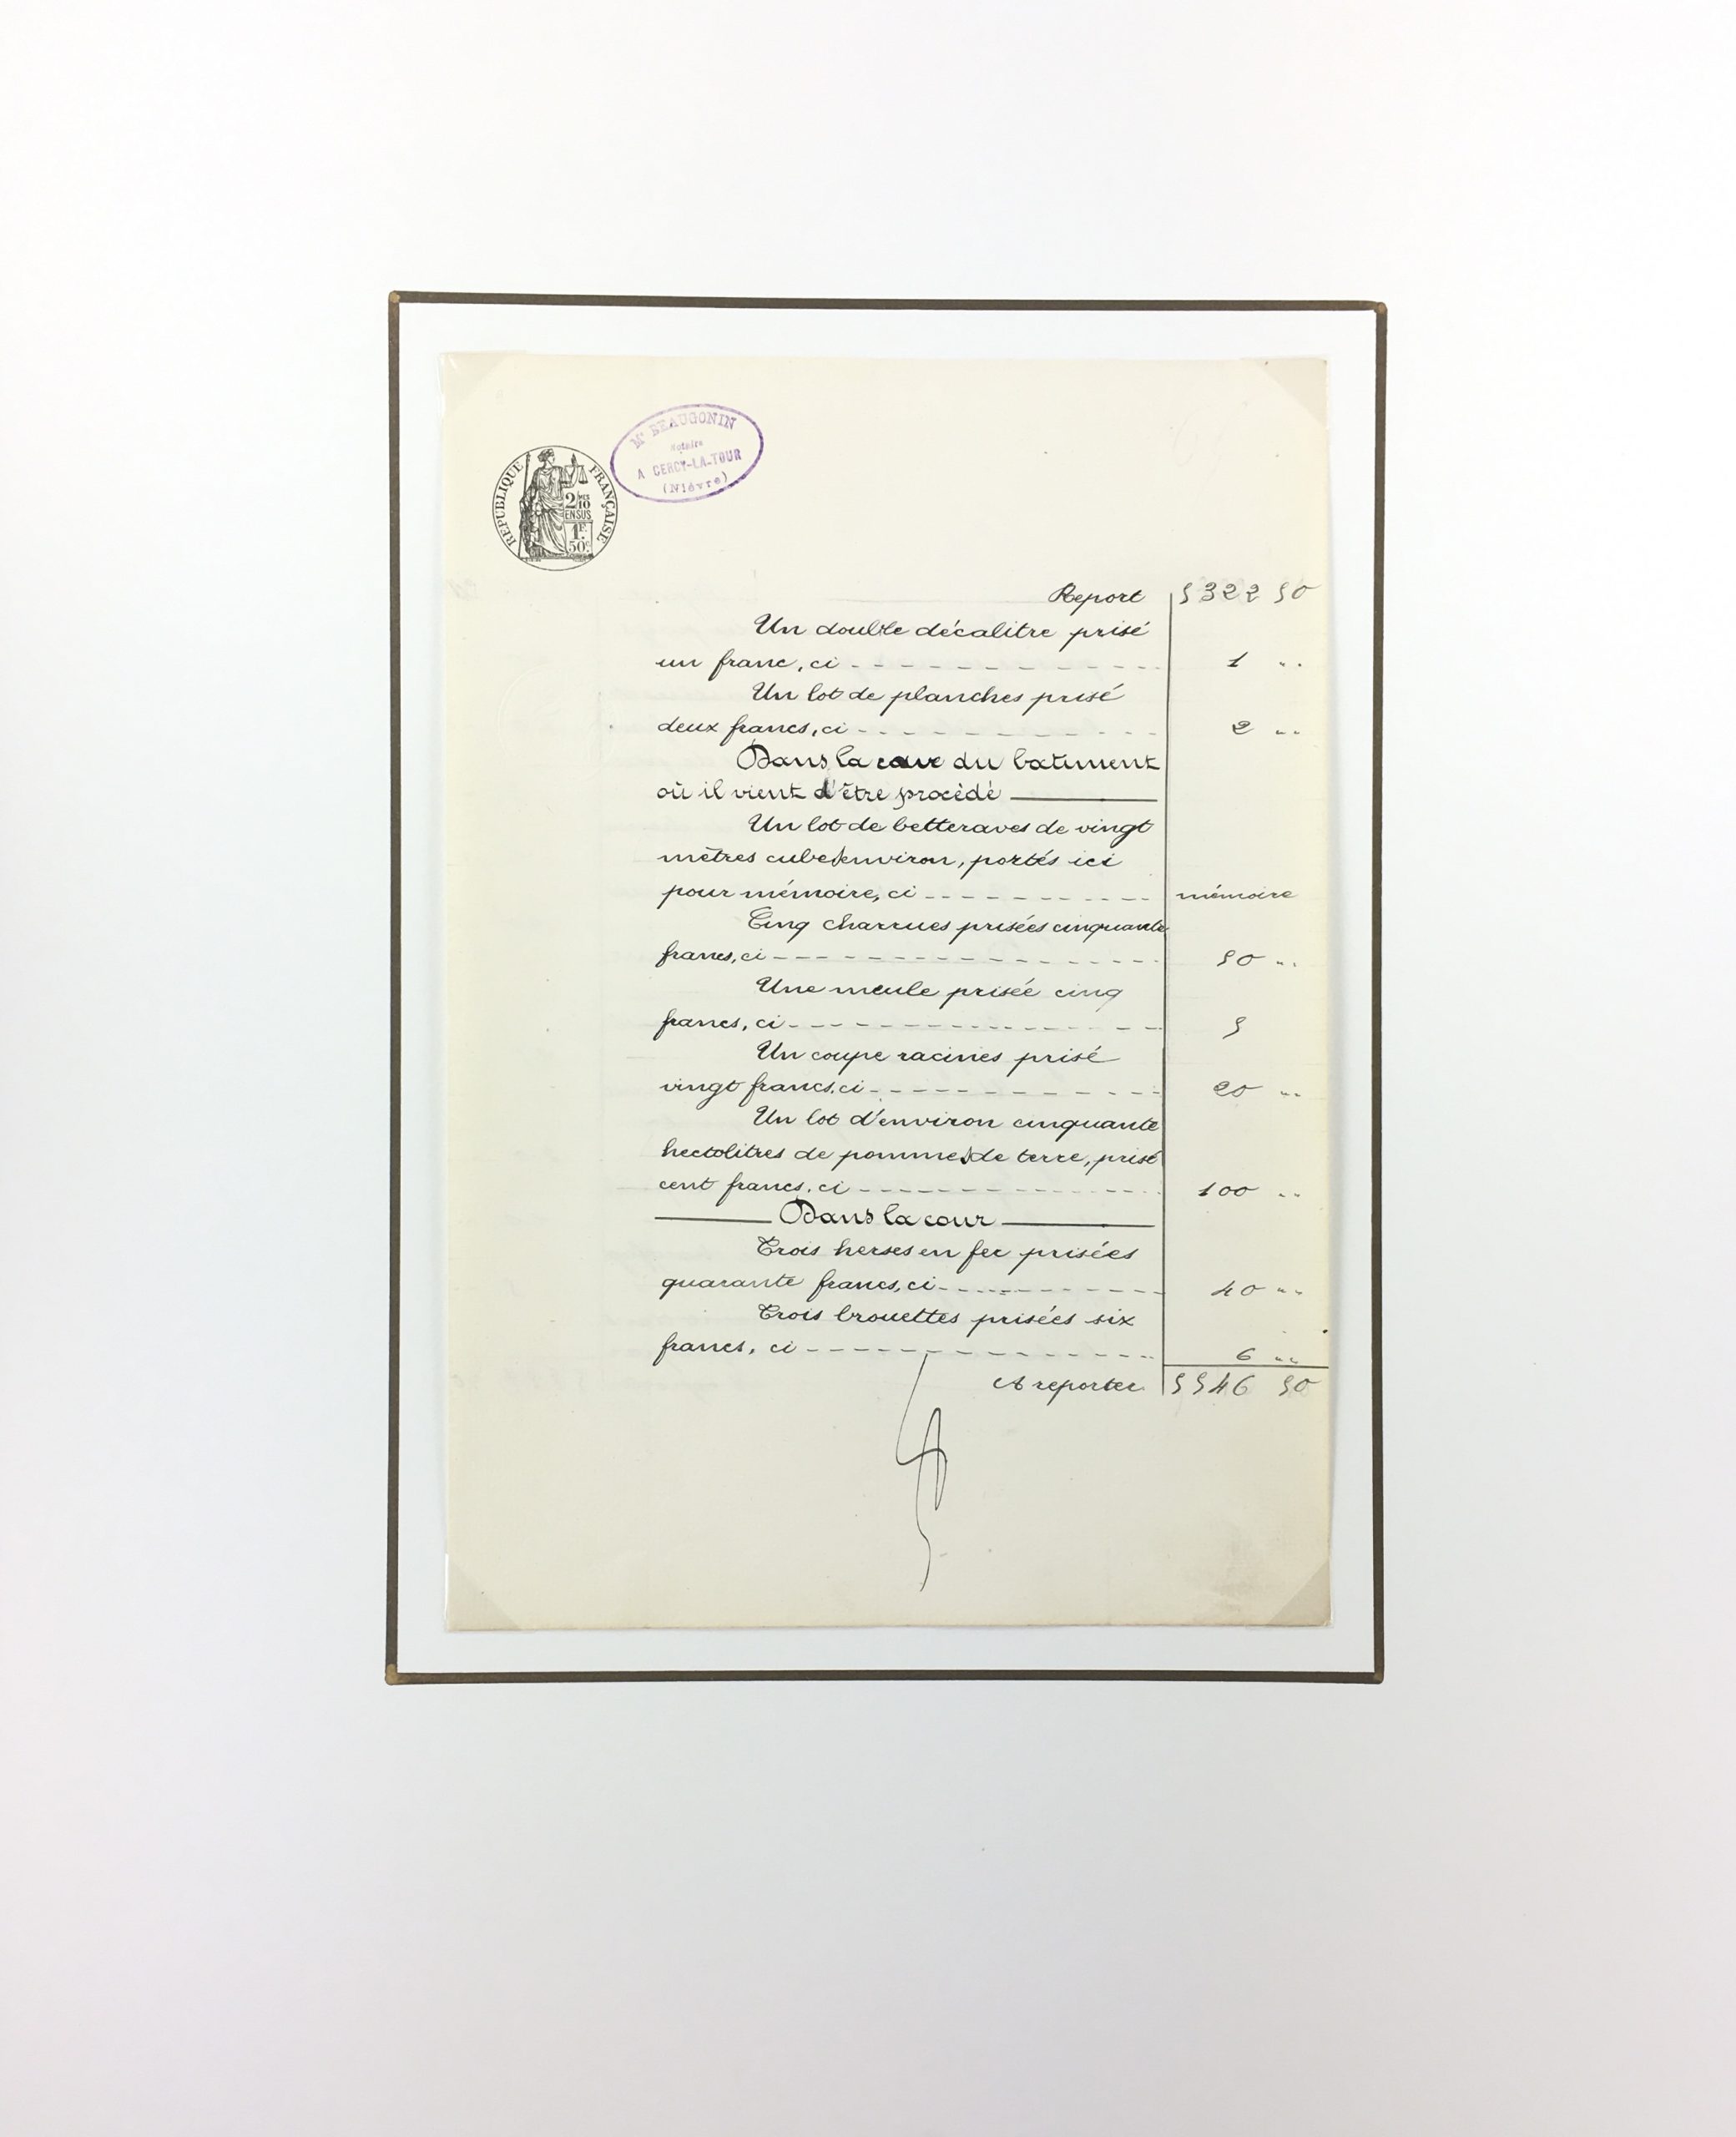 Mᵉ BEAUGONIN
Notaire
A CERCY-LA-TOUR
(Nièvre)
RÉPUBLIQUE FRANÇAISE
2/10
EN SUS
1F.
50c
Report 5322 50
Un double décalitre prisé
un franc, ci - - - - - - - - - - 1 "
Un lot de planches prisé
deux francs, ci - - - - - - - - - - 2 "
Dans la cave du batiment
où il vient d'être procédé
Un lot de betteraves de vingt
mètres cubes environ, portés ici
pour mémoire, ci - - - - - - - - - - mémoire
Cinq charrues prisées cinquante
francs, ci - - - - - - - - - - 50 "
Une meule prisée cinq
francs, ci - - - - - - - - - - 5
Un coupe racines prisé
vingt francs, ci - - - - - - - - - - 20 "
Un lot d'environ cinquante
hectolitres de pommes de terre, prisé
cent francs, ci - - - - - - - - - - 100 "
Dans la cour
Trois herses en fer prisées
quarante francs, ci - - - - - - - - - - 40 "
Trois brouettes prisées six
francs, ci - - - - - - - - - - 6 "
A reporter 5546 50